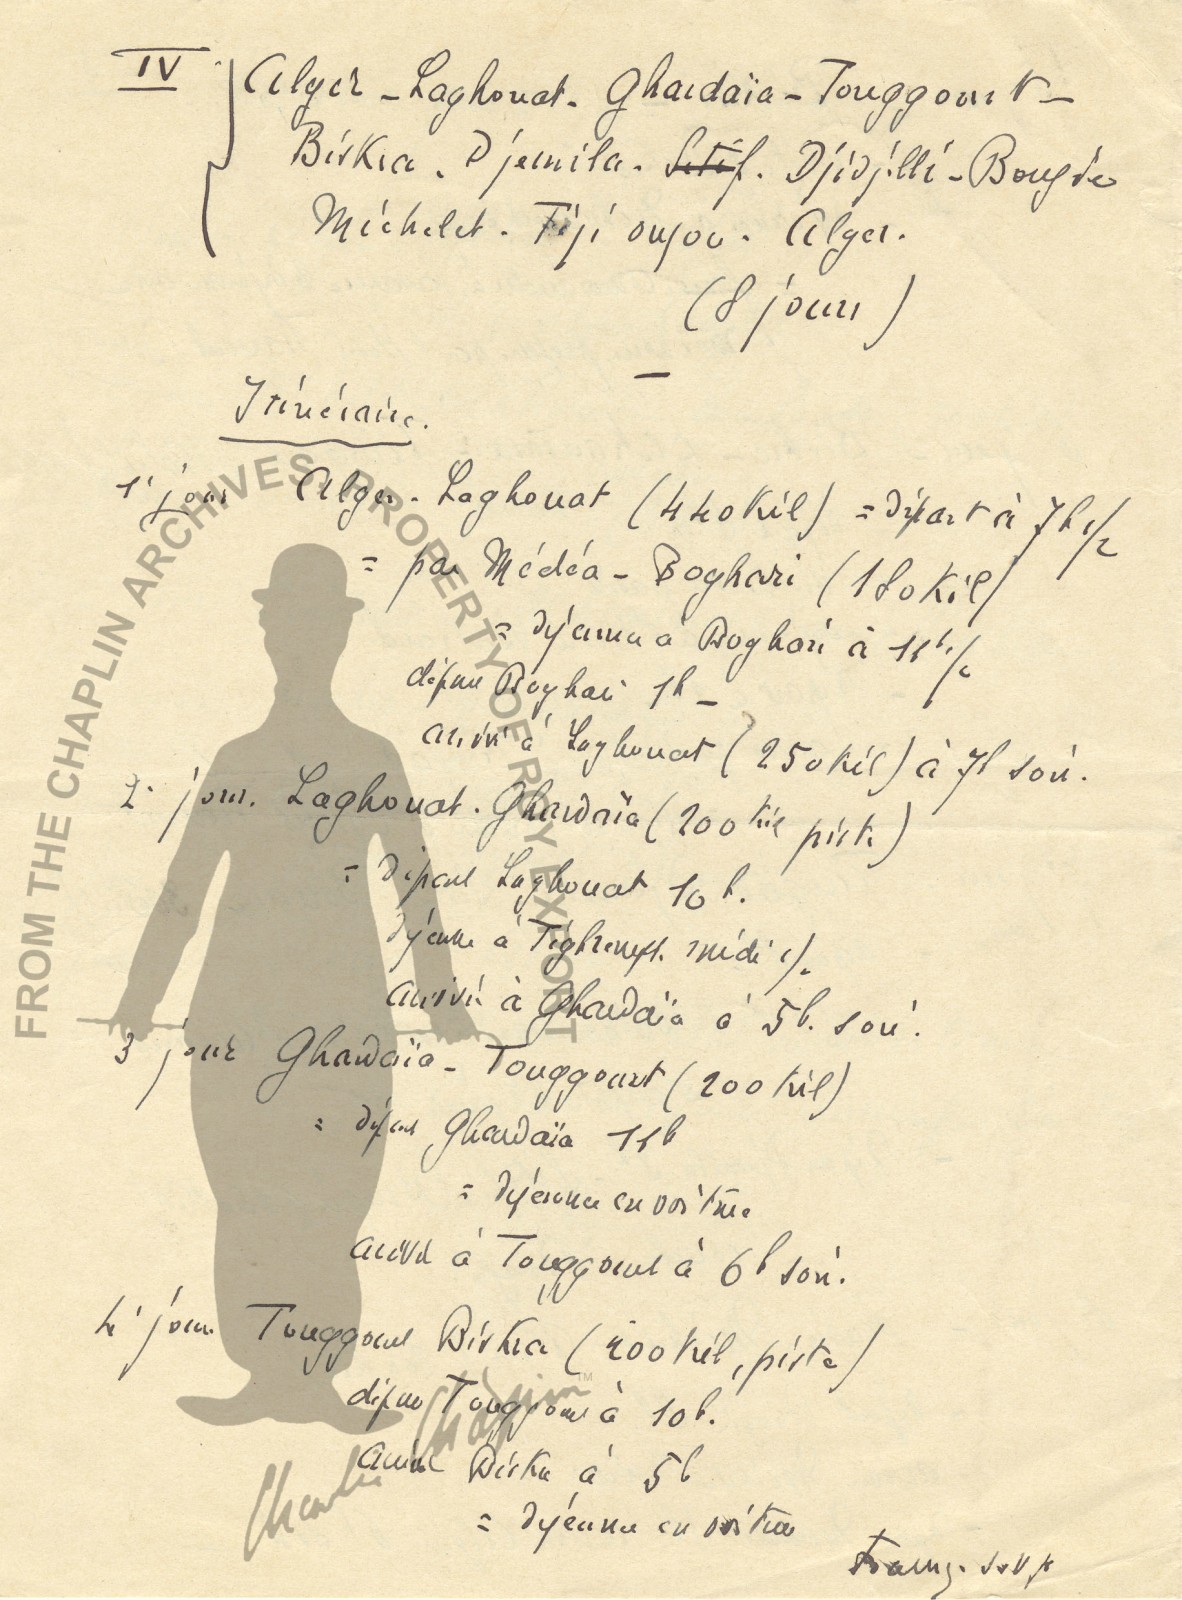 IV Alger - Laghouat - Ghardaïa - Touggourt -
Biskra. Djemila. Sétif. Djidjelli - Bougie
Michelet. Tizi ouzou. Alger.
(8 jours)
Itinéraire.
1r jour Alger. Laghouat (440 Kil) = départ à 7h 1/2
= par Médéa - Boghari (180 Kil)
= Déjeuner à Boghari à 11h 1/2
départ Boghari 1h -
arrivée à Laghouat (250 Kil) à 7h soir.
2e jour. Laghouat. Ghardaïa (200 Kil piste)
= Départ Laghouat 10h.
Déjeuner à midi 1/2
arrivée à Ghardaïa à 5h. soir.
3 jour Ghardaïa - Touggourt (200 Kil)
= départ Ghardaïa 11h
= Déjeuner en voiture
arrivée à Touggourt à 6h soir.
4e jour Touggourt Biskra (200 Kil, piste)
départ Touggourt à 10h.
arrivée Biskra à 5h
= Déjeuner en voiture
FROM THE CHAPLIN ARCHIVES, PROPERTY OF ROY EXPORT
Charlie Chaplin™